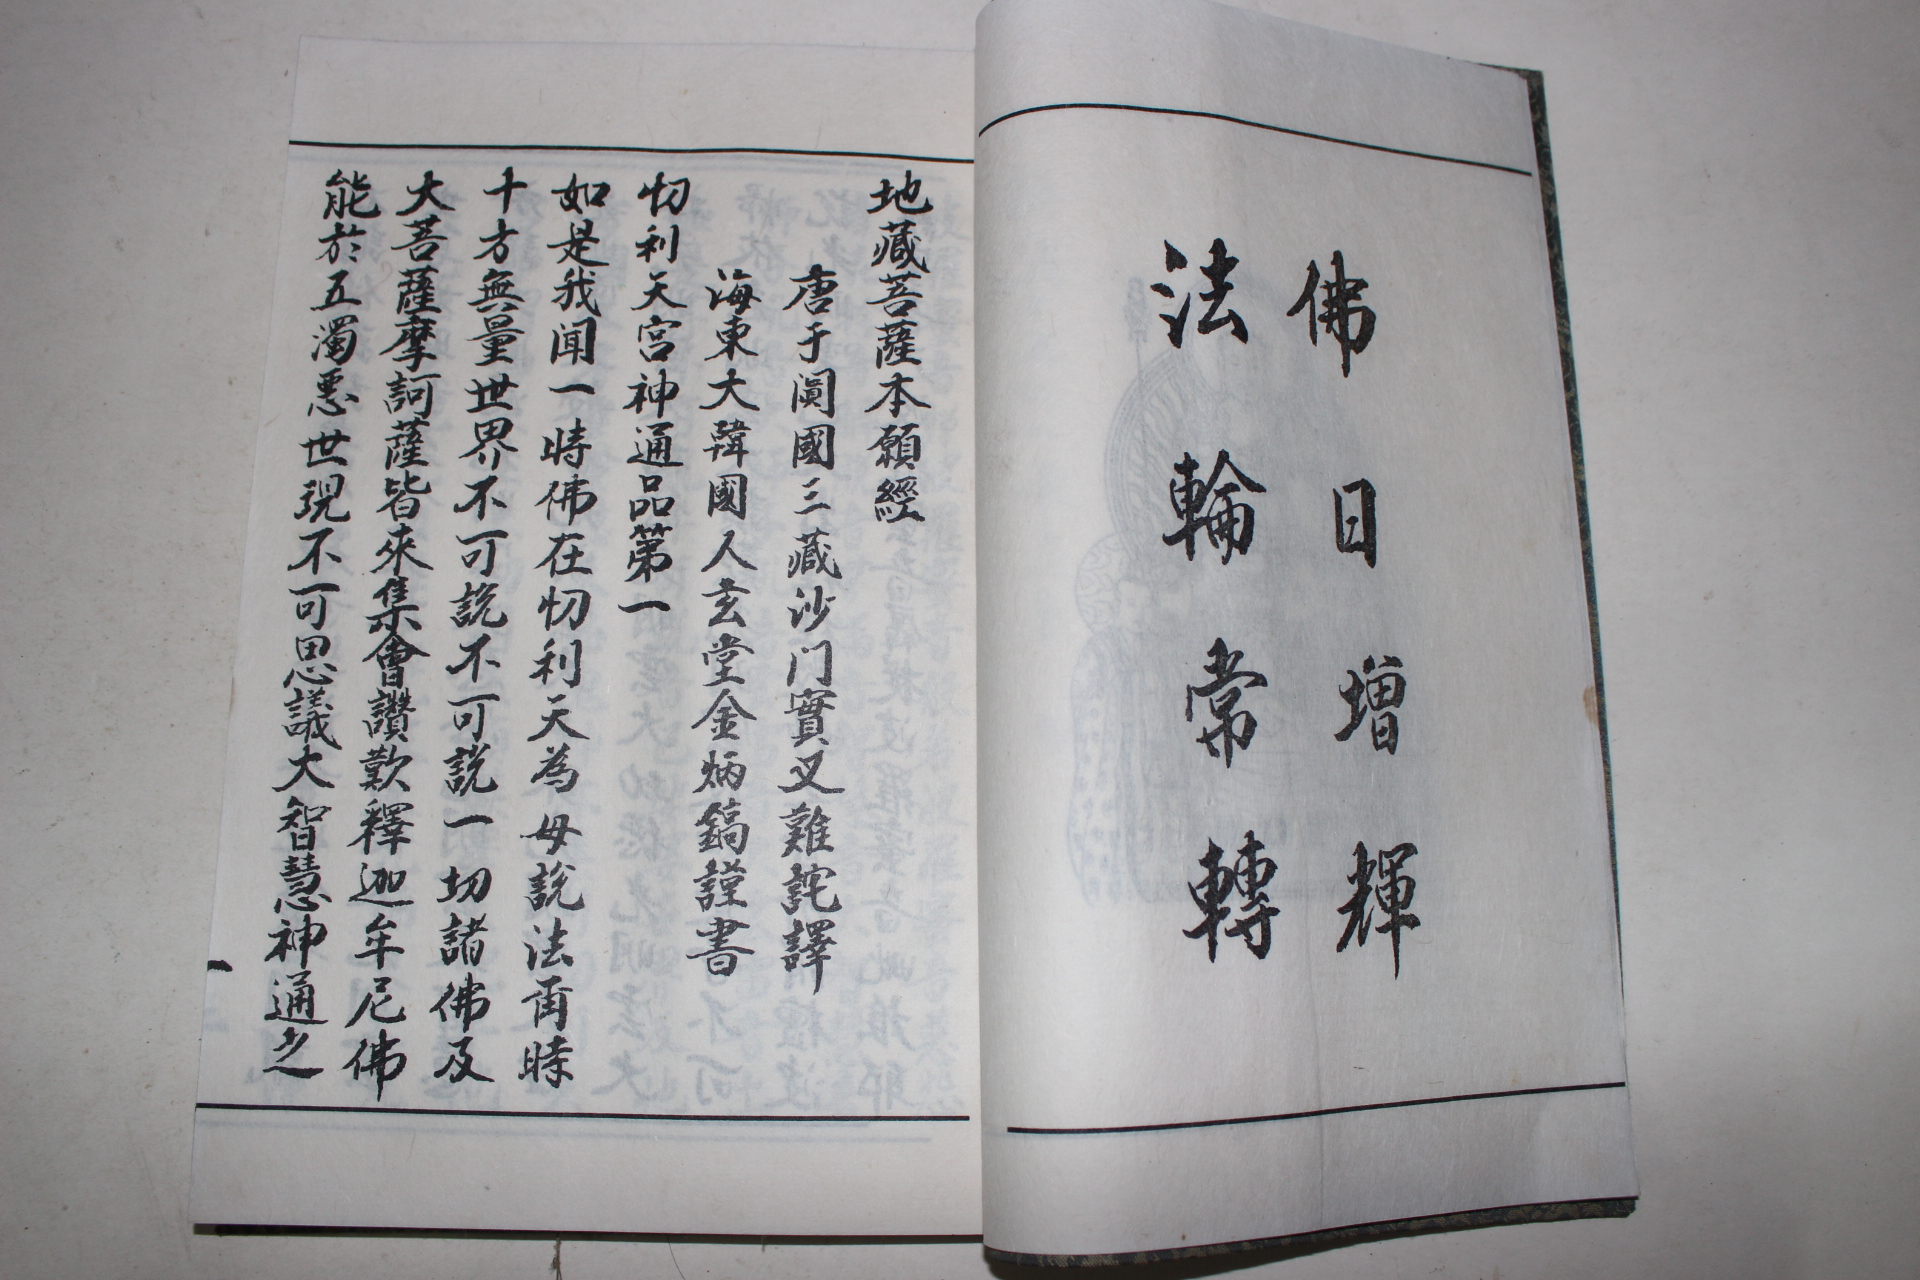 佛日增輝
法輪常轉
地藏菩薩本願經
唐于闐國三藏沙门實叉難詫譯
海東大韓國人玄堂金炳鎬謹書
忉利天宮神通品第一
如是我闻一時佛在忉利天為母說法甭時
十方無量世界不可說不可說一切諸佛及
大菩薩摩訶薩皆來集會讚歎釋迦牟尼佛
能於五濁悪世現不可思議大智慧神通之
一